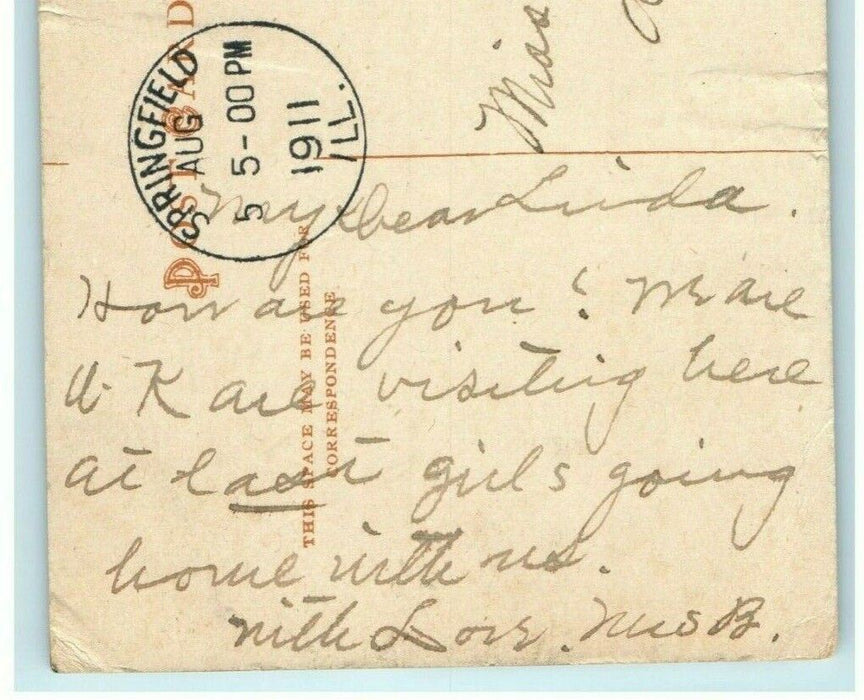 POST CARD
SPRINGFIELD
AUG
5 5-00 PM
1911
ILL.
THIS SPACE MAY BE USED FOR
CORRESPONDENCE
Miss
My dear Linda.
How are you? We are
O.K are visiting here
at last girls going
home with us.
with Love. Mrs B.